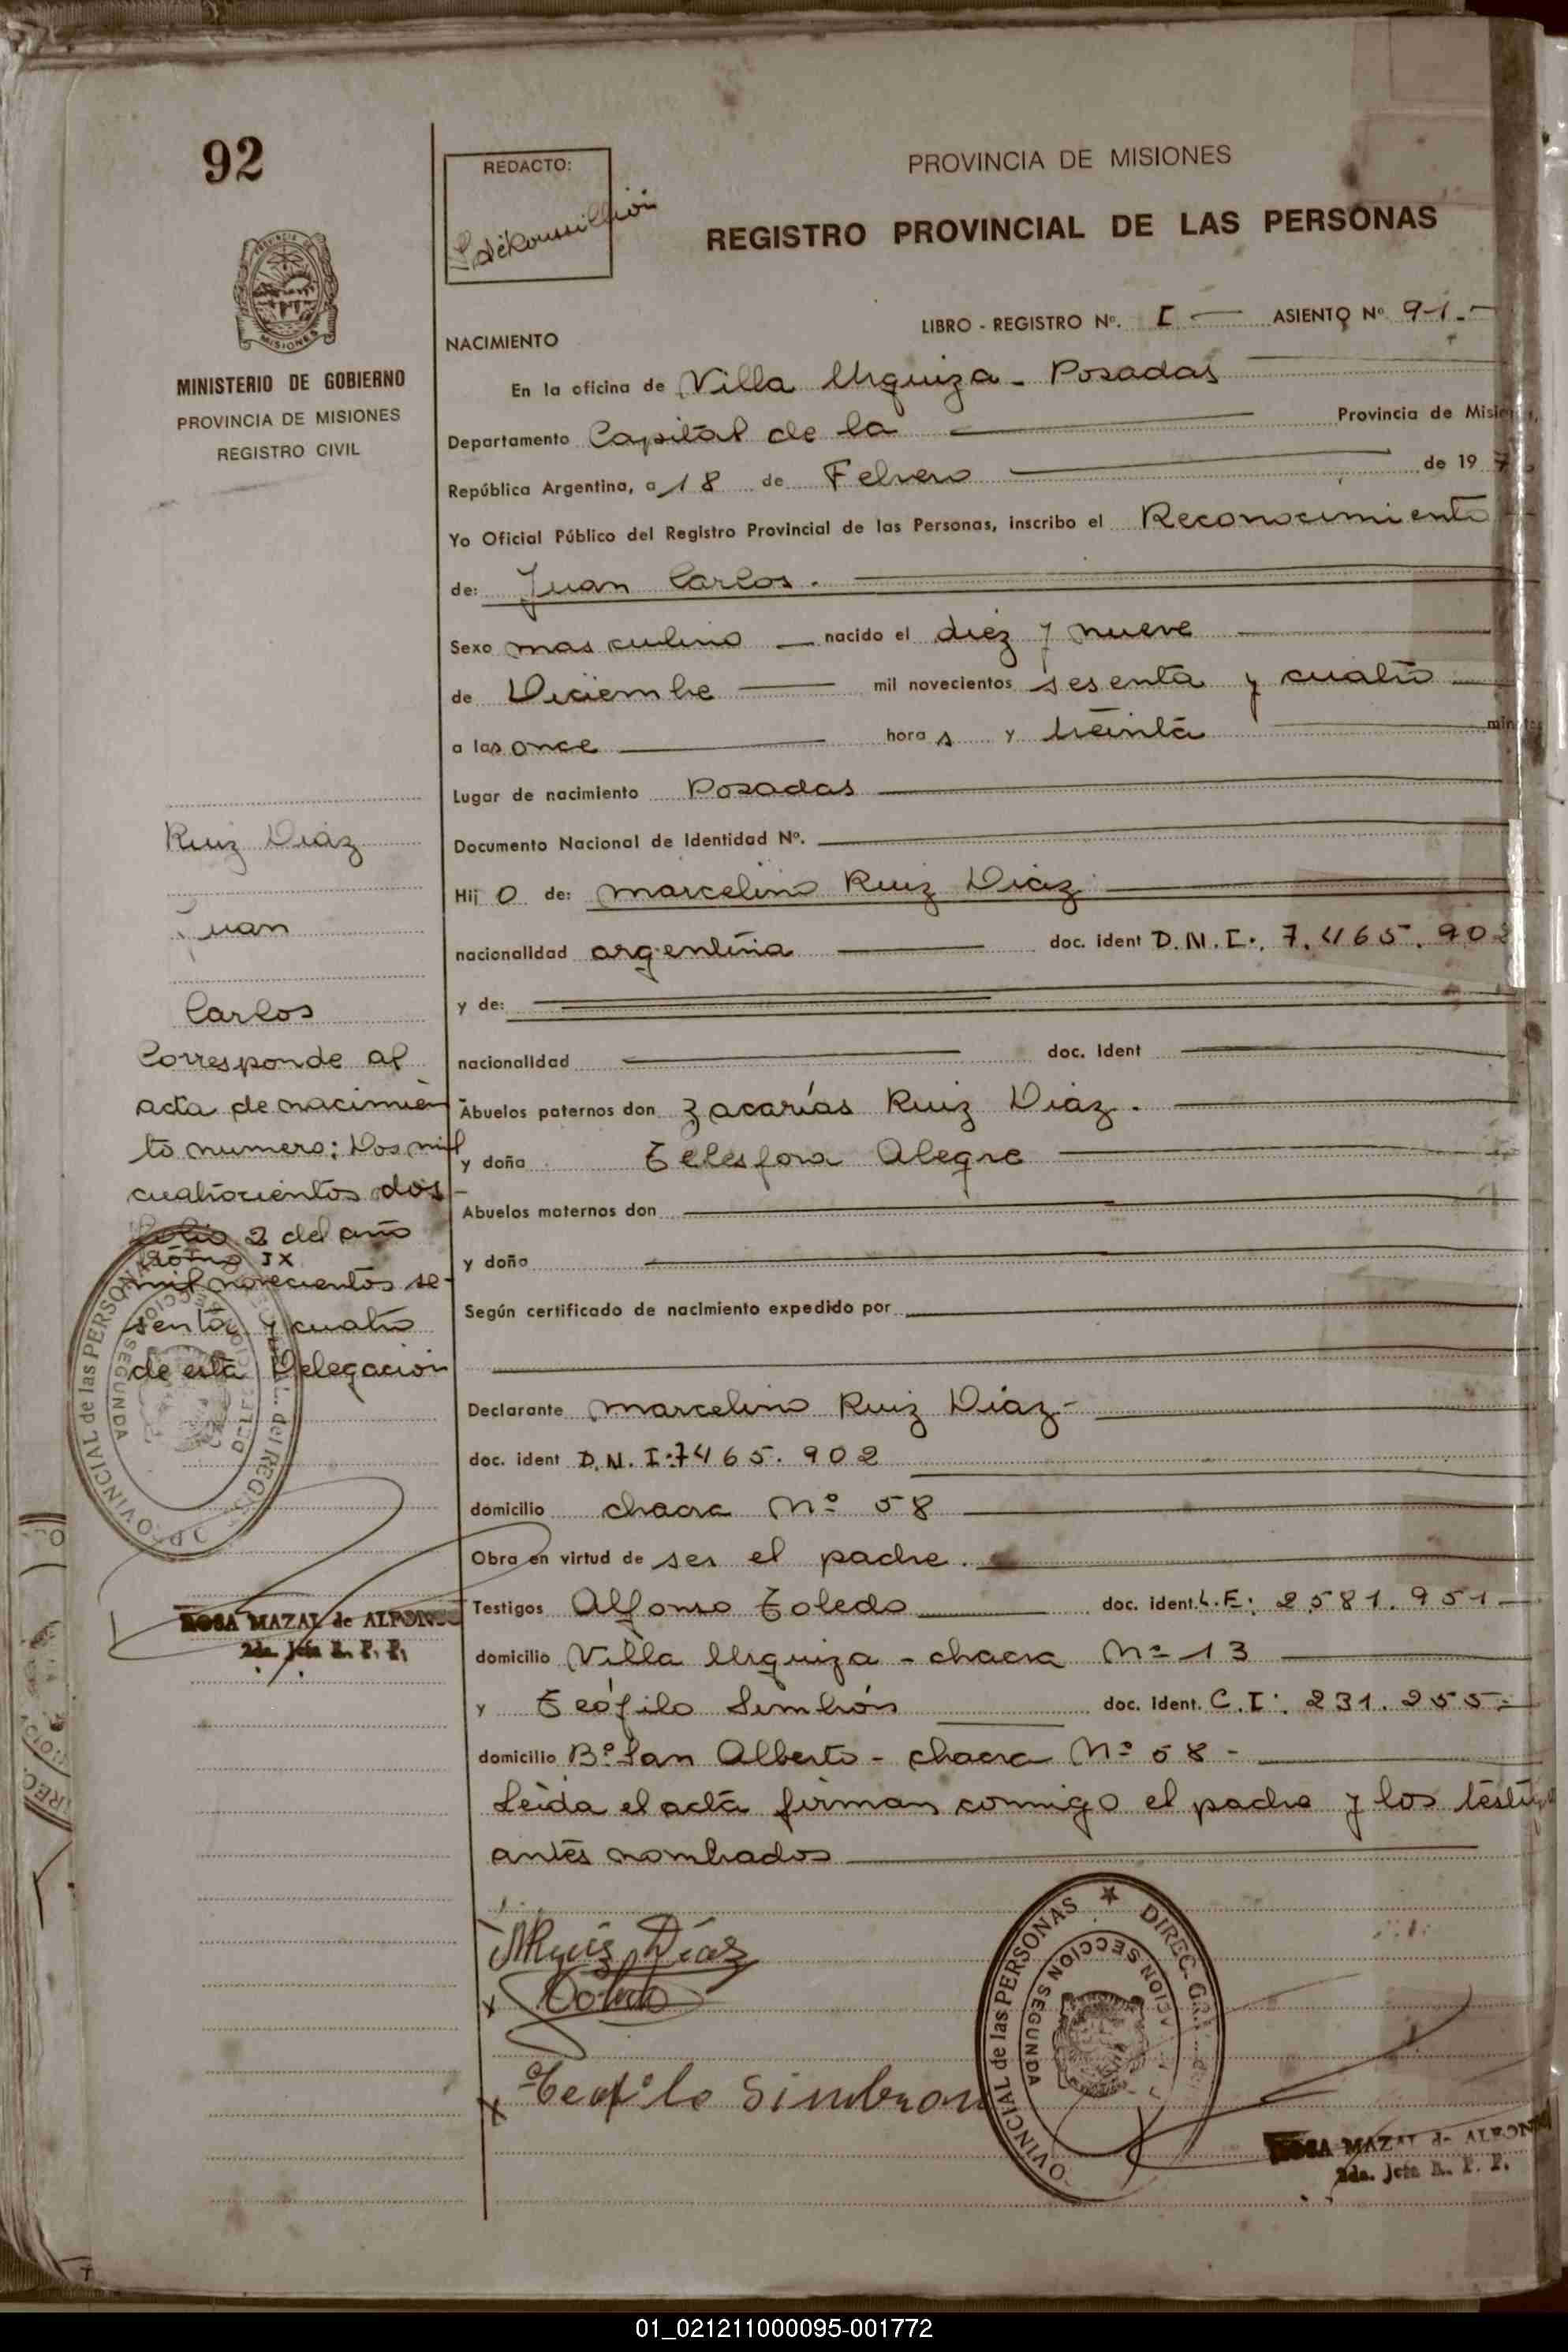 92
REDACTO:
PROVINCIA DE MISIONES
REGISTRO PROVINCIAL DE LAS PERSONAS
MISIONES
MINISTERIO DE GOBIERNO
PROVINCIA DE MISIONES
REGISTRO CIVIL
LIBRO - REGISTRO Nº. I — ASIENTO Nº 91.-
NACIMIENTO
En la oficina de Villa Urquiza - Posadas
Departamento Capital de la Provincia de Misiones,
República Argentina, a 18 de Febrero de 197
Yo Oficial Público del Registro Provincial de las Personas, inscribo el Reconocimiento
de: Juan Carlos.
Sexo masculino nacido el diez y nueve
de Diciembre mil novecientos sesenta y cuatro
a las once horas y treinta minutos
Lugar de nacimiento Posadas
Documento Nacional de Identidad Nº.
Hijo de: Marcelino Ruiz Diaz
nacionalidad argentina doc. ident D.N.I. 7.465.902
y de:
nacionalidad doc. ident
Abuelos paternos don Zacarías Ruiz Diaz.
y doña Telesfora Alegre
Abuelos maternos don
y doña
Según certificado de nacimiento expedido por
Declarante Marcelino Ruiz Díaz-
doc. ident D.N.I:7465.902
domicilio chacra Nº 58
Obra en virtud de ser el padre.
Testigos Alfonso Toledo doc. ident. L.E: 2581.951
domicilio Villa Urquiza - chacra Nº 13
y Teófilo Simbrón doc. ident. C.I: 231.255-
domicilio Bº San Alberto - chacra Nº 58 -
Leida el acta firman conmigo el padre y los testigos
antes nombrados
Ruiz Diaz
Juan
Carlos
Corresponde al
acta de nacimien-
to numero: Dos mil
cuatrocientos dos-
folio 2 del año
tomo IX
mil novecientos se-
senta y cuatro
de esta Delegacion
PROVINCIAL de las PERSONAS
SECCION SEGUNDA
ROSA MAZAL de ALFONSO
2da. Jefa R. P. P.
MRuiz Díaz
Toledo
Teofilo Simbron
PROVINCIAL de las PERSONAS ★ DIREC. GRAL.
SECCION SEGUNDA
ROSA MAZAL de ALFONSO
2da. Jefa R. P. P.
01_021211000095-001772